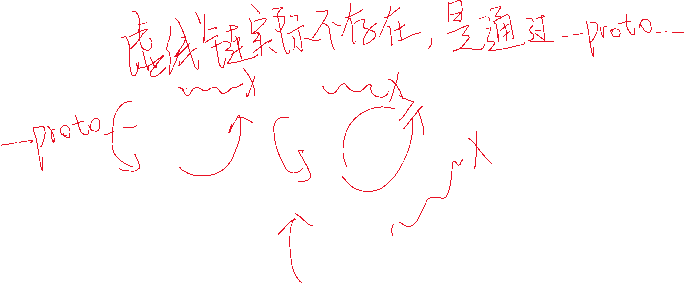 虚线链实际不存在，是通过__proto__
x x
__proto__
x